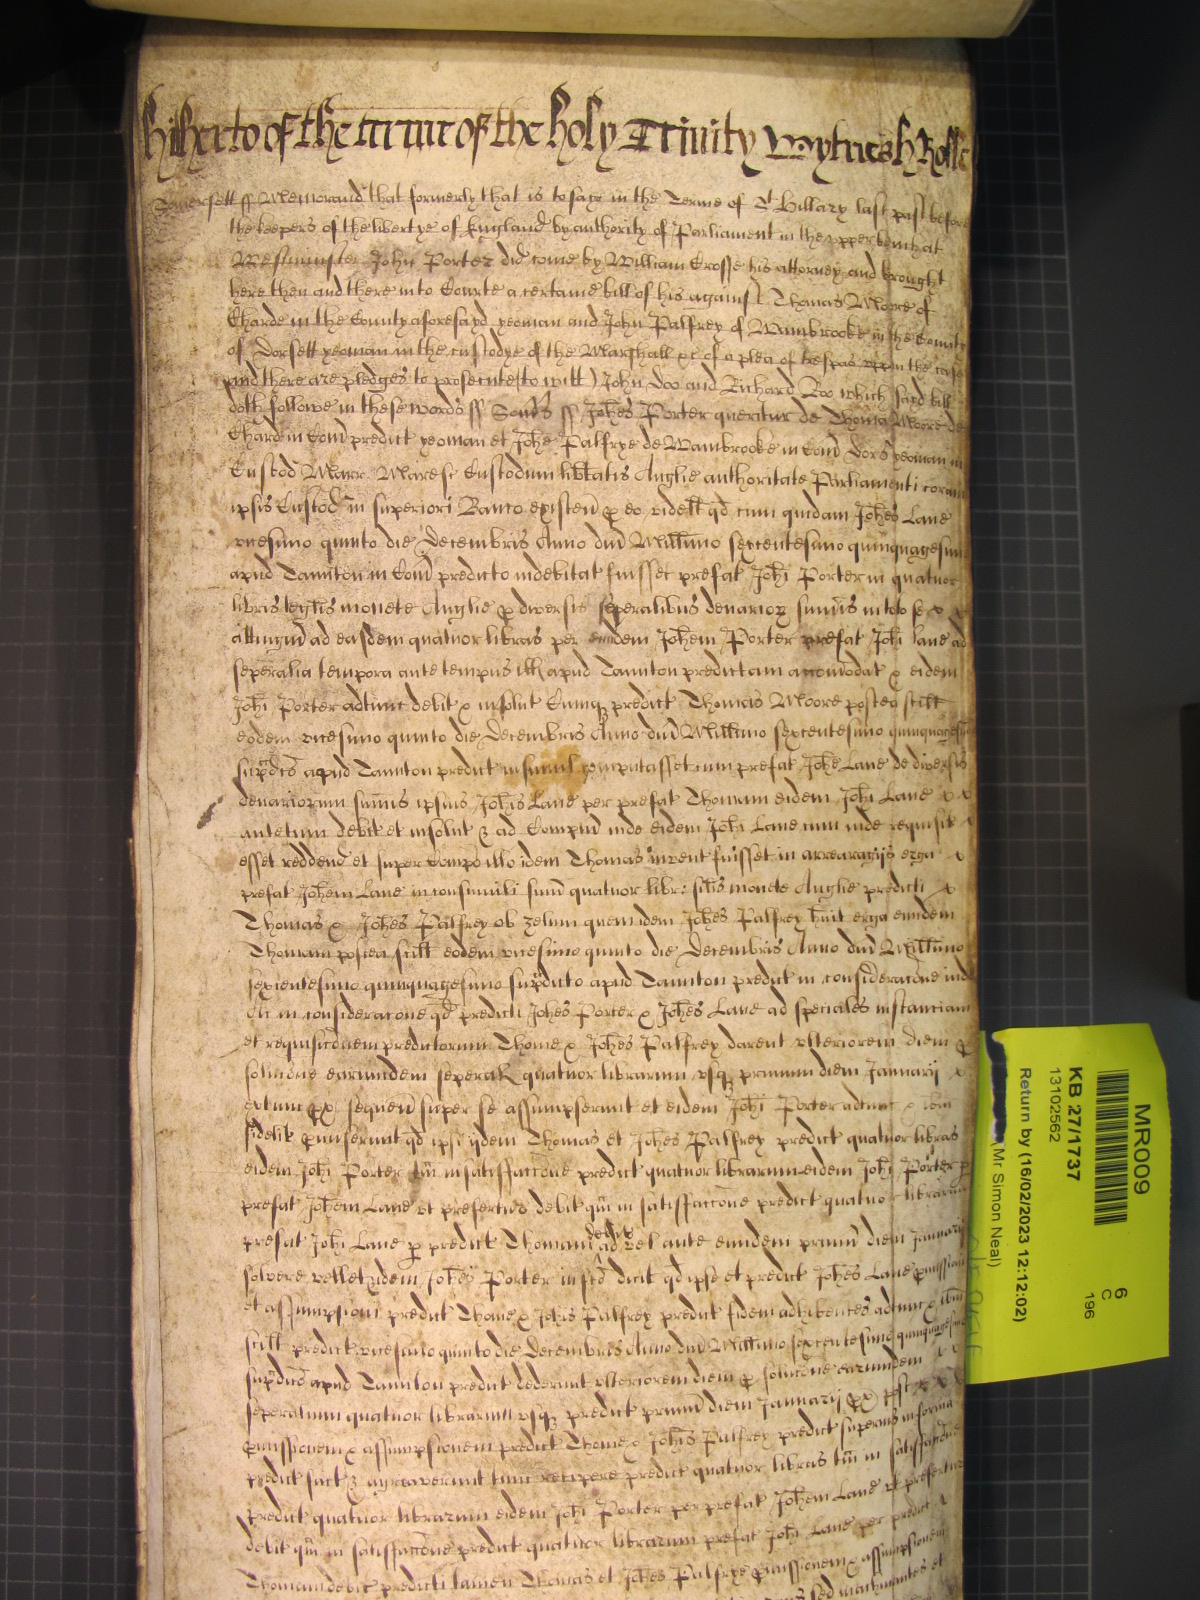 Hitherto of the terme of the holy Trinity Wytnesh Rolle
Somersett ss Memorand that formerly that is to saye in the Terme of St Hillary last past before
the keepers of the libertye of England by authority of Parliament in the upper bench at
Westminster John Porter did come by William Crosse his attorney and brought
here then and there into Courte a certaine bill of his against Thomas Moore of
Charde in the County aforesayd yeoman and John Palfrey of Wambrooke in the County
of Dorsett yeoman in the custodye of the Marshall &c of a plea of trespas uppon the case
and there are pledges to prosecute (to witt) John Doo and Richard Roo which sayd bill
doth followe in these words ss Soms ss Johes Porter queritur de Thoma Moore de
Chard in Com predict yeoman et Johe Palfrye de Wambrooke in Com Dors yeoman in
Custod Marr Maresc Custodum libtatis Anglie authoritate Parliamenti coram
ipsis Custod in superiori Banco existen p eo videlt qd cum quidam Johes Lane
vicesimo quinto die Decembris Anno dni Millimo sexcentesimo quinquagesimo
apud Taunton in Com predicto indebitat fuisset prefat Johi Porter in quatuor
libris leglis monete Anglie p diversis seperalibus denarior sumis in toto se
attingen ad easdem quatuor libras per eundem Johem Porter prefat Johi Lane ad
seperalia tempora ante tempus ill apud Taunton predictam accomodat & eidem
Johi Porter adtunc debit & insolut Cumq predict Thomas Moore postea scilt
eodem vicesimo quinto die Decembris Anno dni Millimo sexcentesimo quinquagesimo
supdco apud Taunton predict insimul computasset cum prefat Johe Lane de diversis
denariorum sumis ipsius Johis Lane per prefat Thomam eidem Johi Lane
antetunc debit et insolut & ad Comptum inde eidem Johi Lane cum inde requisit
esset reddend et super Compo illo idem Thomas invent fuisset in arreragijs erga
prefat Johem Lane in consimili sum quatuor libr: silis monete Anglie predicti
Thomas & Johes Palfrey ob zelum quem idem Johes Palfrey huit erga eundem
Thomam postea scilt eodem vicesimo quinto die Decembris Anno dni Millimo
sexcentesimo quinquagesimo supdicto apud Taunton predict in consideracone inde
Ac in consideracone qd predicti Johes Porter & Johes Lane ad speciales instanciam
et requisicionem predictorum Thome & Johes Palfrey darent ulteriorem diem p
solucone earundem seperal quatuor librarum usq primum diem Januarij
extunc px sequen super se assumpserunt et eidem Johi Porter adtunc & ibm
fidelit promiserunt qd ipsi ijdem Thomas et Johes Palfrey predict quatuor libras
eidem Johi Porter in satisfaccone predict quatuor librarum eidem Johi Porter p
prefat Johem Lane ut prefertur debit in satisfaccone predict quatuor librarum
prefat Johi Lane p predict Thomam debit ad vel ante eundem primum diem Januarij
solvere vellet idem Johes Porter in fco dicit qd ipse et predict Johes Lane promission
et assumpsioni predict Thome & Johis Palfrey predict fidem adhibentes adtunc & ibm
scilt predict vicesimo quinto die Decembris Anno dni Millimo sexcentesimo quinquagesimo
supdco apud Taunton predict dederunt ulteriorem diem p solucone earundem
seperalium quatuor librarum usq predict primum diem Januarij px post
promissionem & assumpsionem predict Thome & Johis Palfrey predict superius in forma
predict fact & agreaverunt tunc recipere predict quatuor libras in satisfaccone
predict quatuor librarum eidem Johi Porter per prefat Johem Lane ut prefertur
debit in satisfaccone predict quatuor librarum prefat Johi Lane per predict
Thomam debit predicti tamen Thomas et Johes Palfrye promissionem & assumpsionem
sed machinantes et
MR009
KB 27/1737
13102562
Return by (16/02/2023 12:12:02)
(Mr Simon Neal)
6
C
196